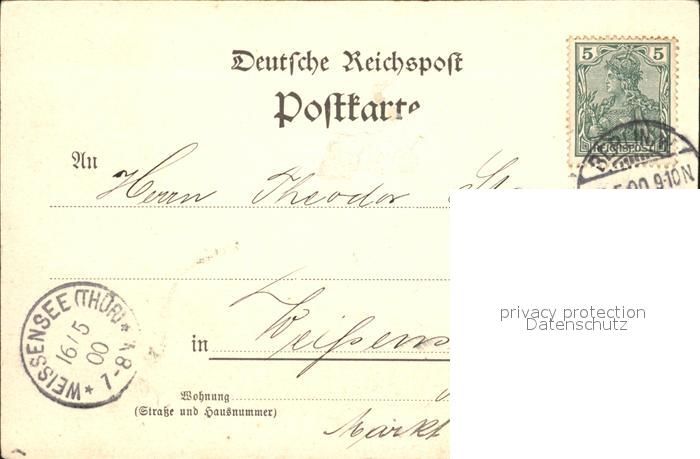 Deutsche Reichspost
Postkarte
5 5
REICHSPOST
An
Herrn Theodor
BERLIN
5.00 9-10N
WEISSENSEE (THÜR) * 7-8 *
16/5
00
privacy protection
Datenschutz
in Weißens
Wohnung
(Straße und Hausnummer)
Markt